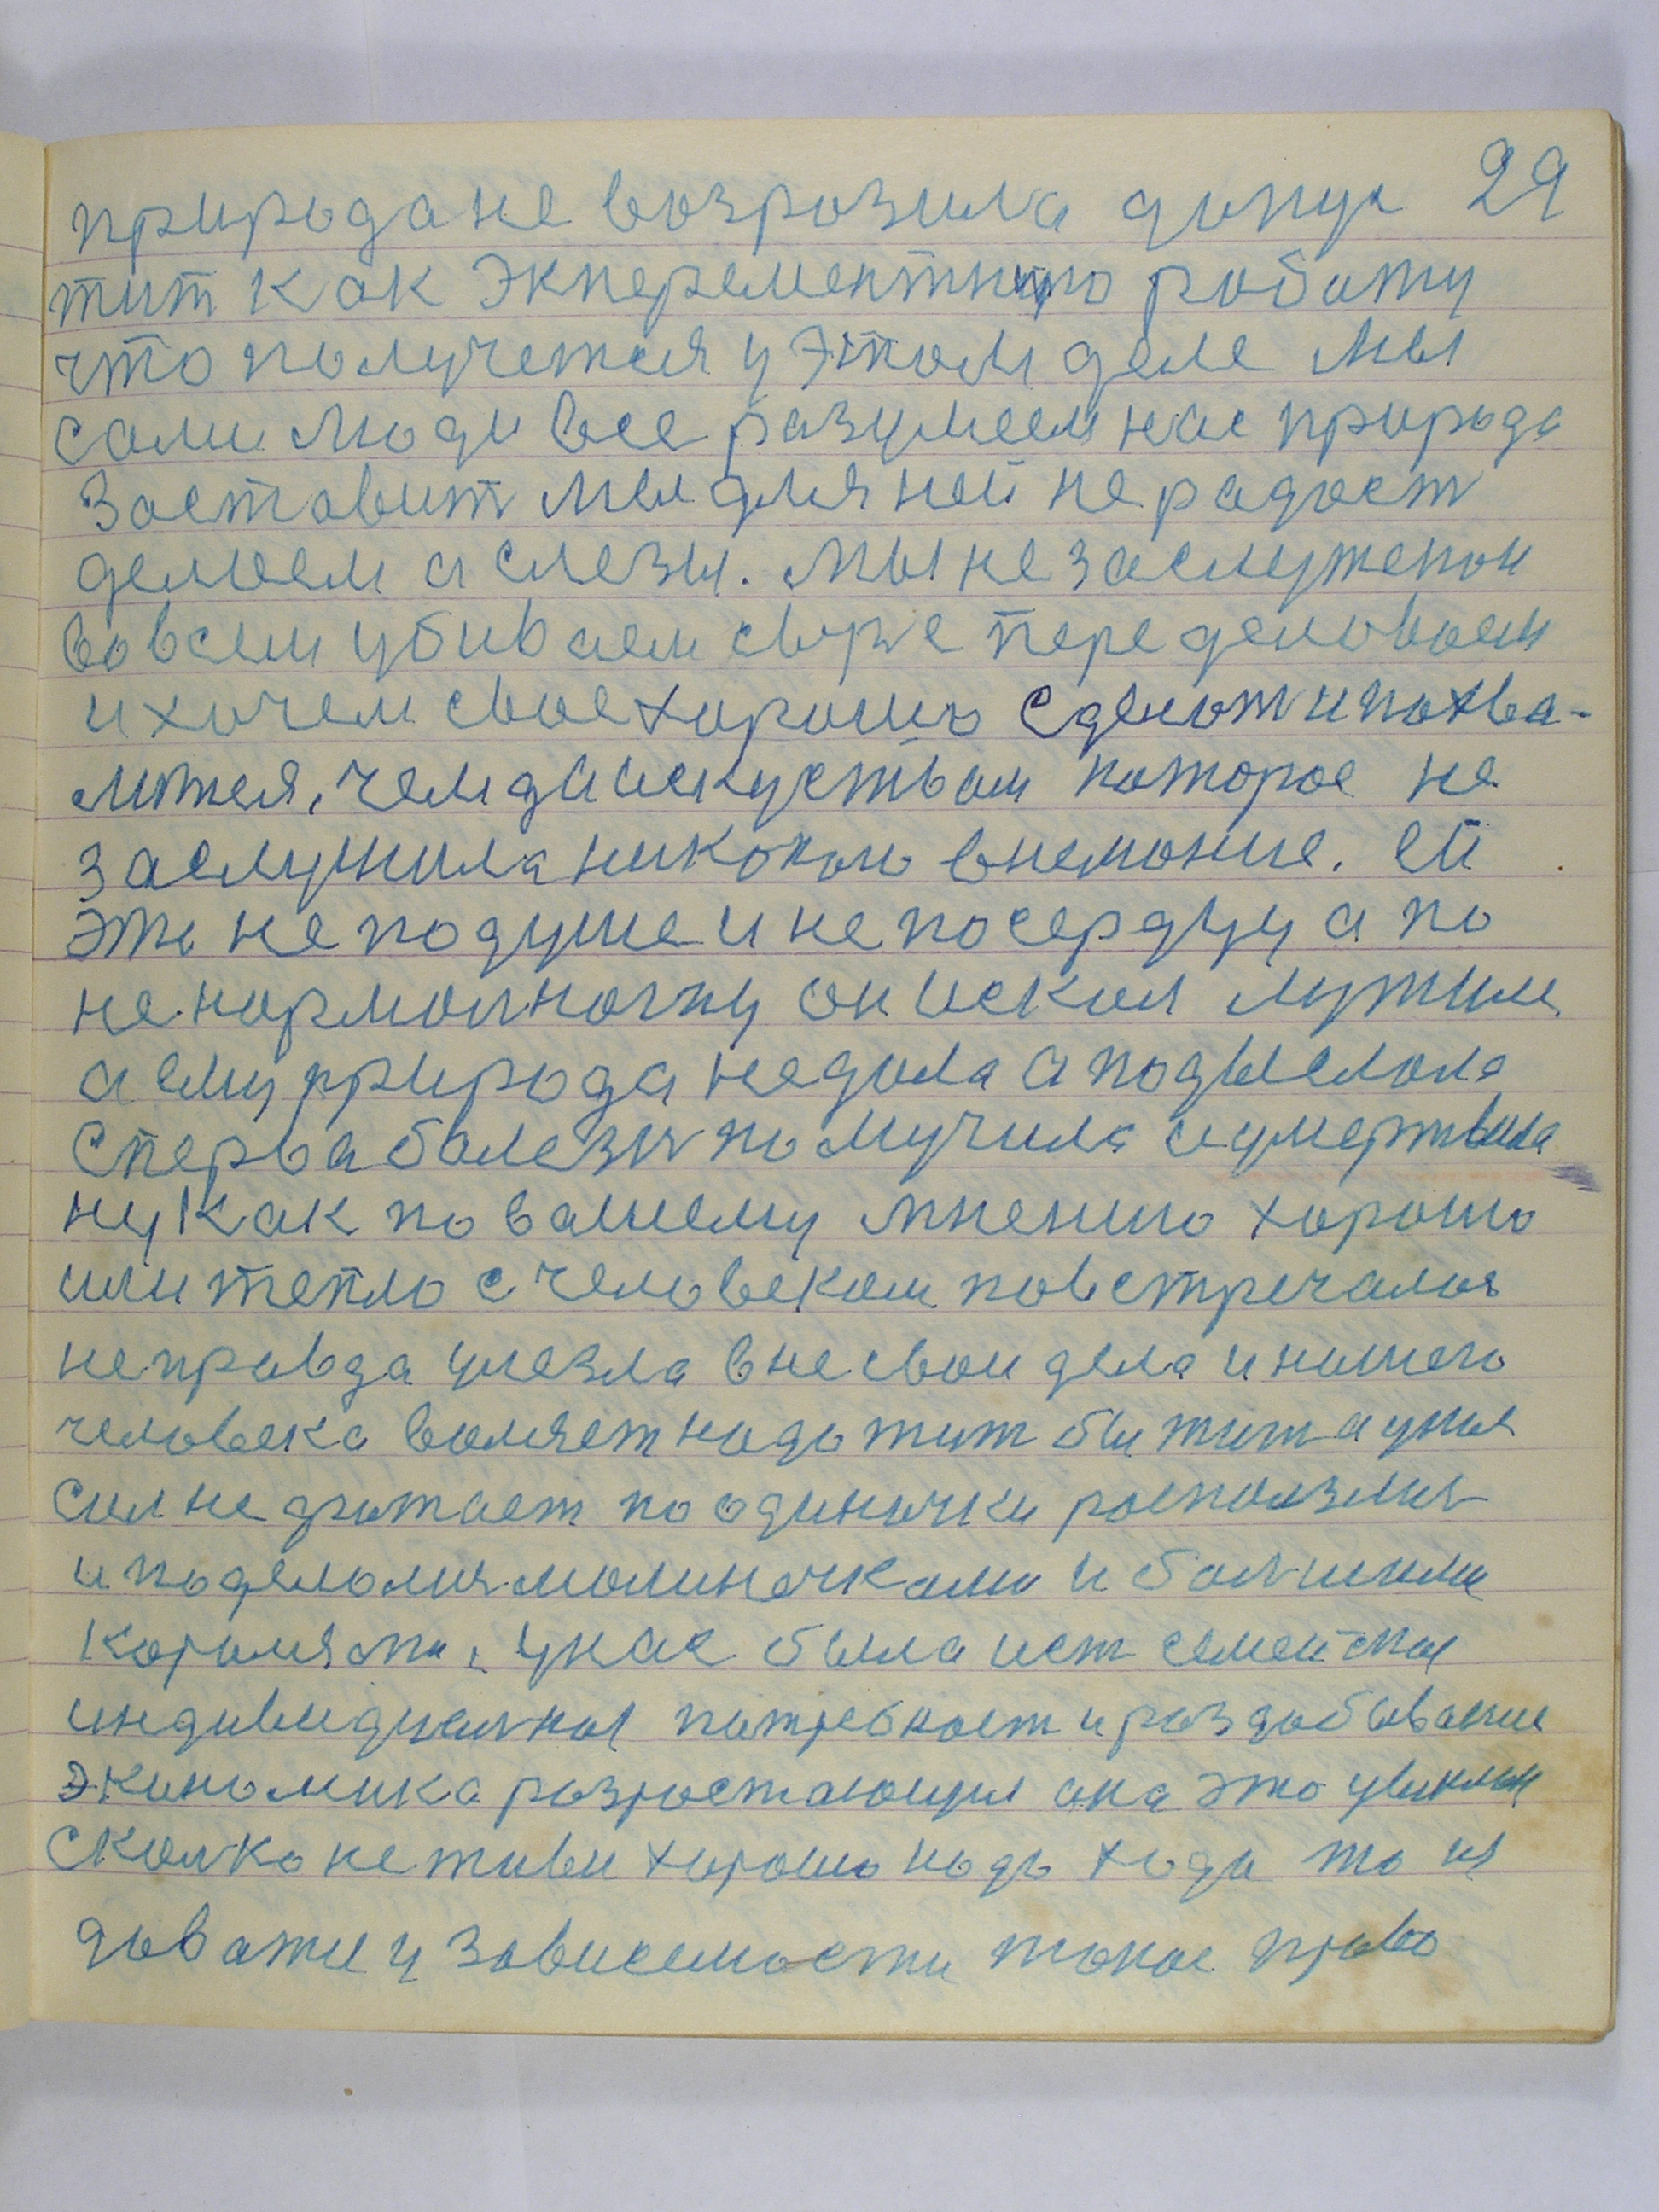 29
природа не возрозила допус
тит как экперементную роботу
что получется у этом деле мы
сами люди все разумеем нас природа
заставит мы для ней не радост
делаем а слезы. Мы не заслуженои
вовсем убиваем сырье переделоваем
и хочем свое хорошо сделат и похва-
литься, чем да искуством которое не
заслужила никокого внемоние. ей
это не по душе и не по сердцу а по
не нормолночку он искал лутшие
а ему природа не дала а подыслала
сперва болезн помучила и умертвила
ну как по вашему мнению хорошо
или тепло с человеком повстречалоя
неправда улезла в не свои дела и нашего
человека воляет надо жит бы жит а у ния
сил не фатает по одиночки росползлис
и поделолис малиночкоми и болшими
королями, у нас была ест семейская
индивидуалная потребност и раздобывание
экономика разростающия она это увикли
сколко не живи хорошо надо ходи то и
доват и у зовисемости токое право